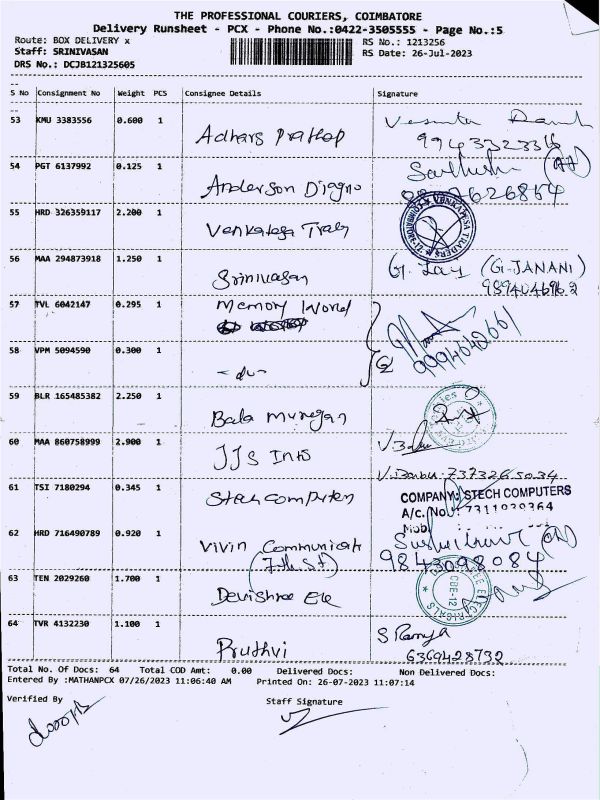 THE PROFESSIONAL COURIERS, COIMBATORE
Delivery Runsheet - PCX - Phone No.:0422-3505555 - Page No.:5
Route: BOX DELIVERY x RS No.: 1213256
Staff: SRINIVASAN RS Date: 26-Jul-2023
DRS No.: DCJB121325605
S No Consignment No Weight PCS Consignee Details Signature
53 KMU 3383556 0.600 1
Adhars Prathap
54 PGT 6137992 0.125 1
Anderson Diagno
55 HRD 326359117 2.200 1
Venkatesa Trads
56 MAA 294873918 1.250 1 (G.JANANI)
Srinivasan
57 TVL 6042147 0.295 1 Memory World
9994642661
58 VPM 5094590 0.300 1
- du -
59 BLR 165485382 2.250 1
Bala Murugan
60 MAA 860758999 2.900 1 V.Babu
JJS Ints
V.Babu. 7373265034
61 TSI 7180294 0.345 1 COMPANY: STECH COMPUTERS
Stech computers A/c. No.: 7311020364
Mob
62 HRD 716490789 0.920 1
Vivin Communicati 9843098084
(7th St)
63 TEN 2029260 1.700 1
Devishree Ele
64 TVR 4132230 1.100 1 S Ramya
Pruthvi 6369428732
Total No. Of Docs: 64 Total COD Amt: 0.00 Delivered Docs: Non Delivered Docs:
Entered By :MATHANPCX 07/26/2023 11:06:40 AM Printed On: 26-07-2023 11:07:14
Verified By Staff Signature